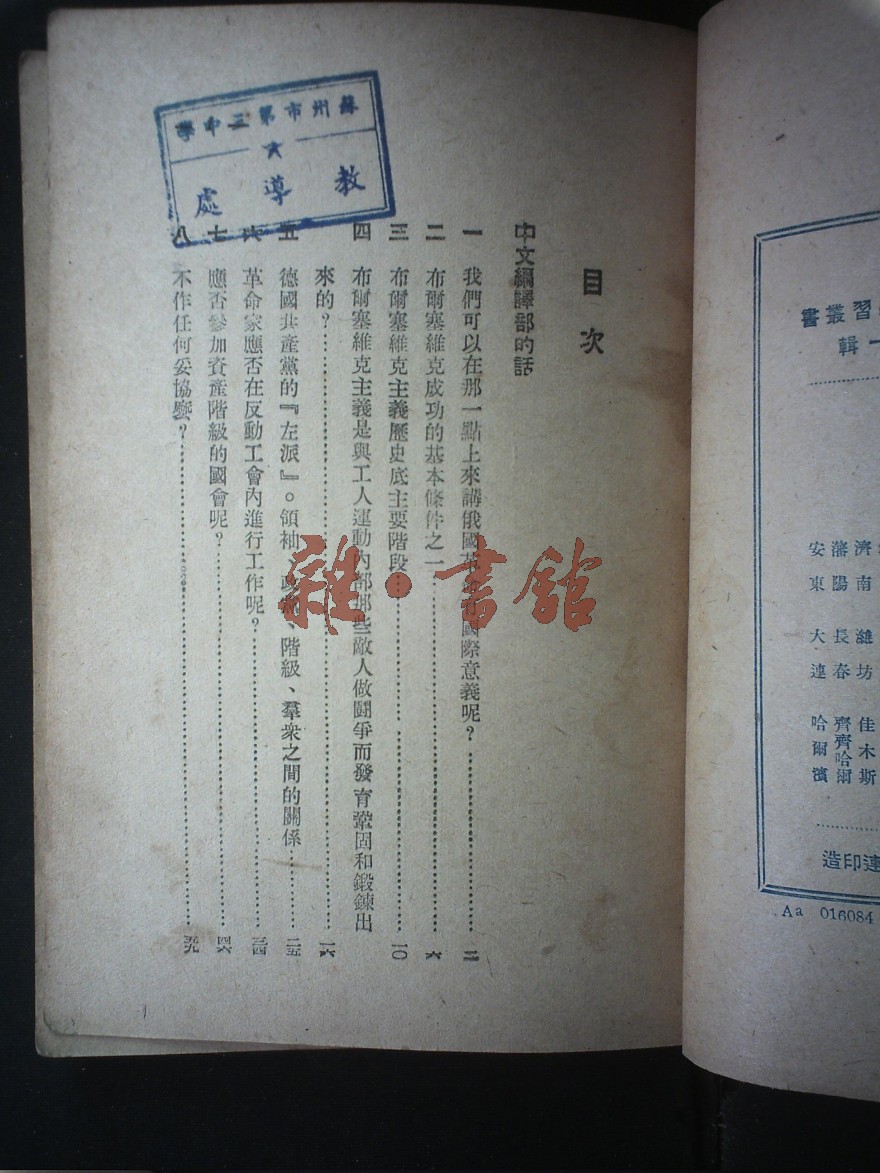 蘇州市第三中學
教導處
目次
中文編譯部的話
一 我們可以在那一點上來講俄國革命的國際意義呢?
二 布爾塞維克成功的基本條件之一 六
三 布爾塞維克主義歷史底主要階段 一〇
四 布爾塞維克主義是與工人運動內部那些敵人做鬭爭而發育鞏固和鍛鍊出
來的? 一六
五 德國共產黨的『左派』。領袖、政黨、階級、羣衆之間的關係 二五
六 革命家應否在反動工會內進行工作呢? 三四
七 應否參加資產階級的國會呢? 四六
八 不作任何妥協麽? 五九
雜·書館
習叢書
一輯
濟南 濰坊 佳木斯
藩陽 長春 齊齊哈爾
安東 大連 哈爾濱
連印造
Aa 016084